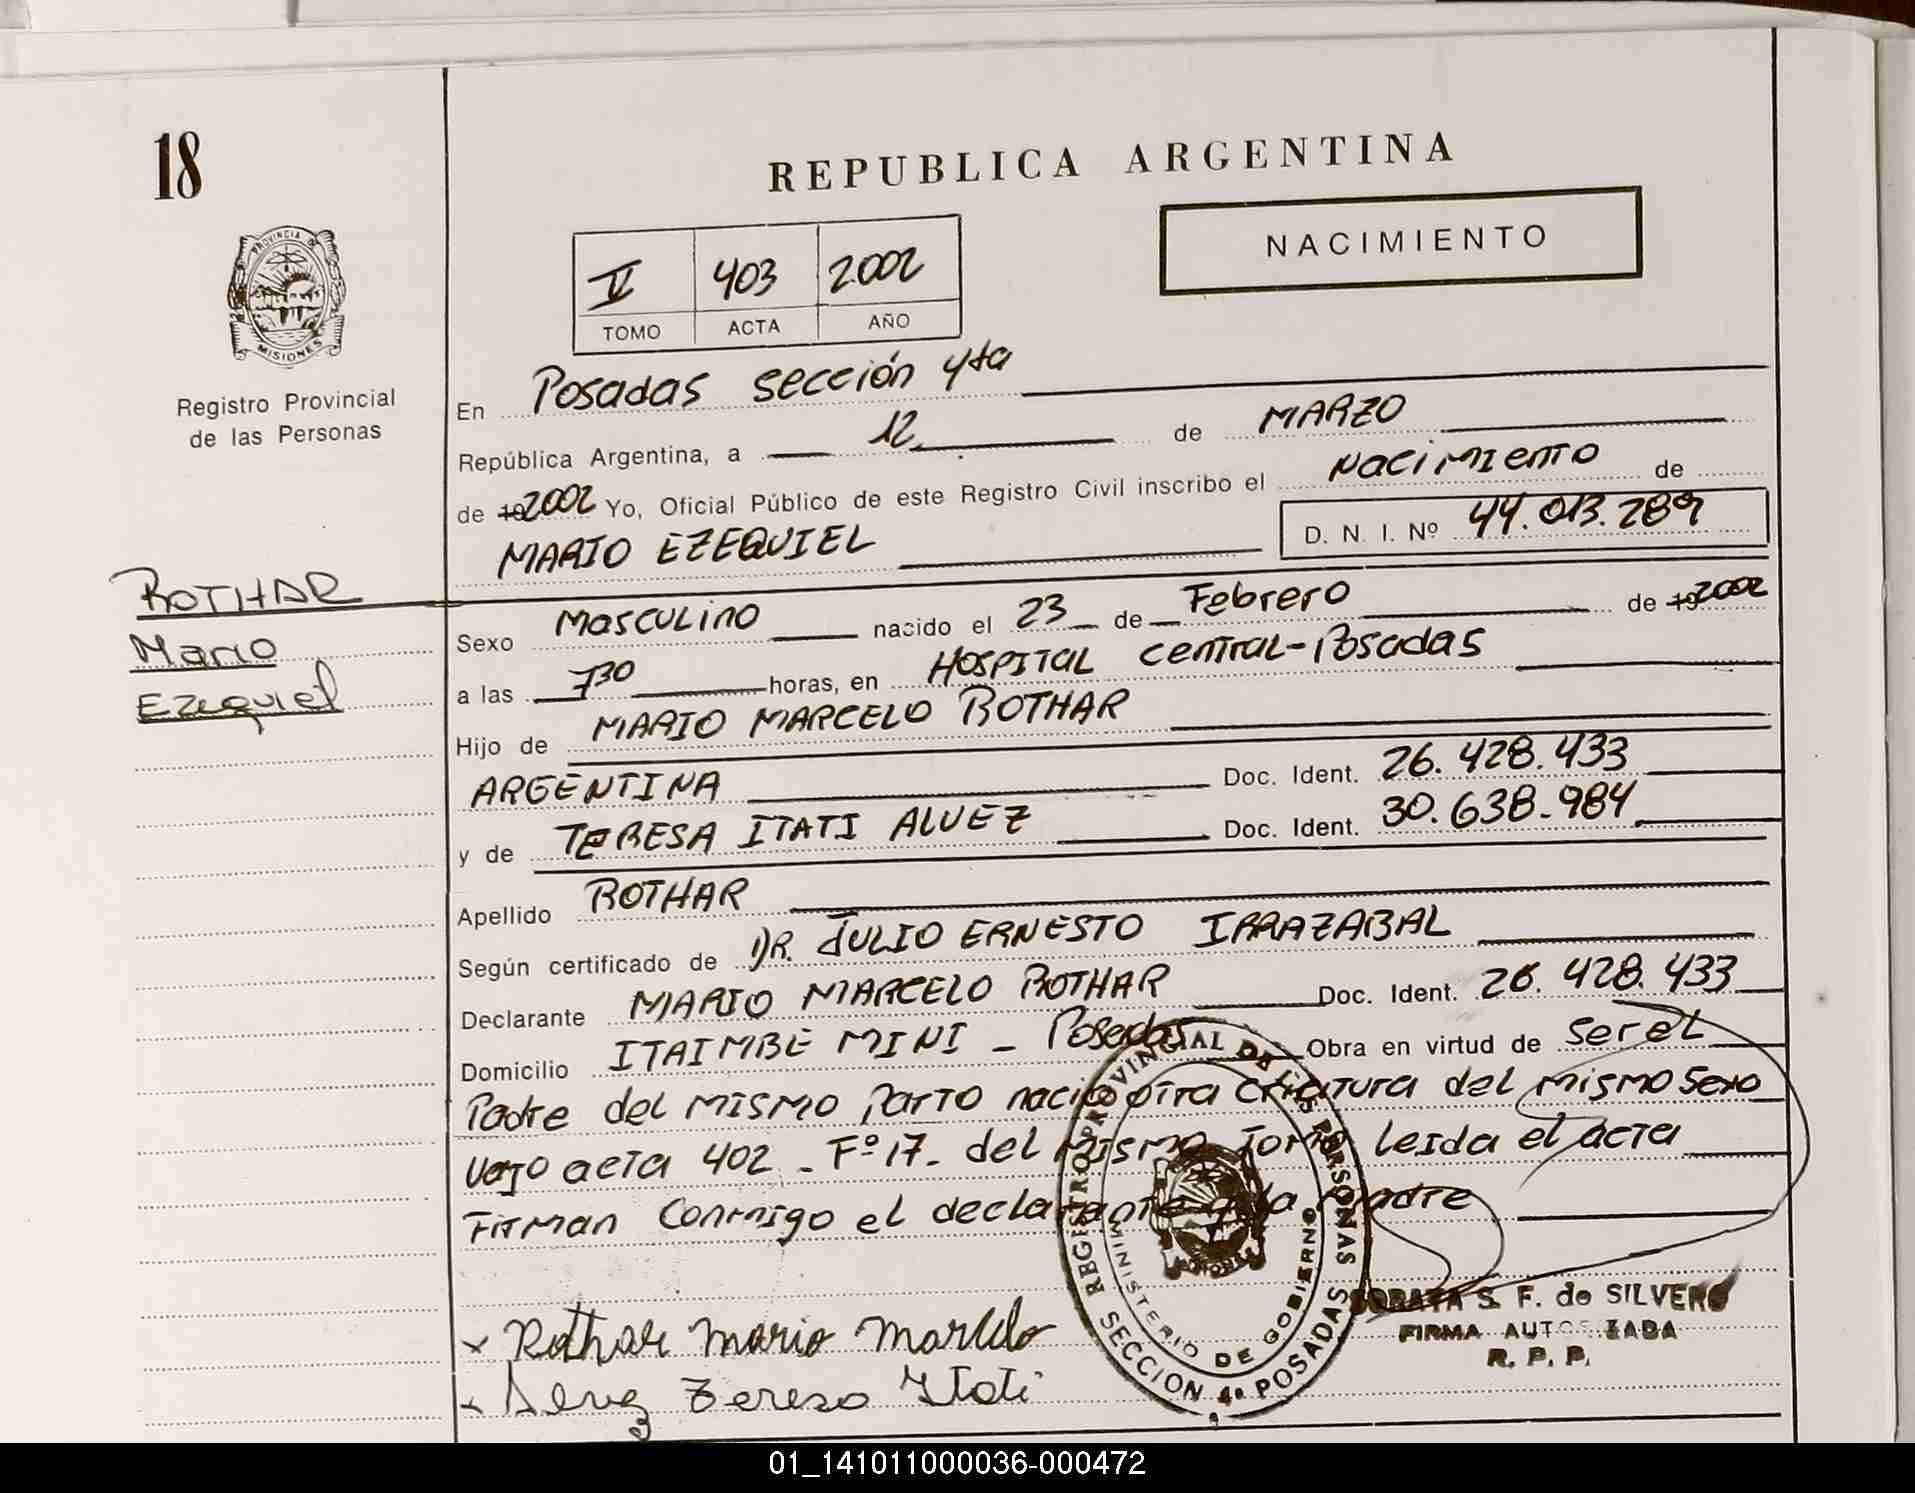 18
REPUBLICA ARGENTINA
NACIMIENTO
PROVINCIA DE
MISIONES
Registro Provincial
de las Personas
V 403 2002
TOMO ACTA AÑO
En Posadas sección 4ta
República Argentina, a 12 de MARZO
de 192002 Yo, Oficial Público de este Registro Civil inscribo el Nacimiento de
MARIO EZEQUIEL D. N. I. Nº 44.013.289
ROTHAR
Mario
Ezequiel
Sexo Masculino nacido el 23 de Febrero de 192002
a las 730 horas, en HOSPITAL Central-Posadas
Hijo de MARIO MARCELO ROTHAR
ARGENTINA Doc. Ident. 26.428.433
y de TERESA ITATI ALVEZ Doc. Ident. 30.638.984
Apellido ROTHAR
Según certificado de DR. JULIO ERNESTO IRRAZABAL
Declarante MARIO MARCELO ROTHAR Doc. Ident. 26.428.433
Domicilio ITAIMBE MINI - Posadas Obra en virtud de ser el
Padre del mismo Parto nacio otra criatura del mismo sexo
vajo acta 402 - Fº 17 - del mismo tomo leida el acta
Firman Conmigo el declarante y la madre
REGISTRO PROVINCIAL DE LAS PERSONAS
MINISTERIO DE GOBIERNO
SECCION 4ª POSADAS
x Rothar Mario Marcelo
x Alvez Teresa Itati
S. F. de SILVERO
FIRMA AUTORIZADA
R. P. P.
01_141011000036-000472